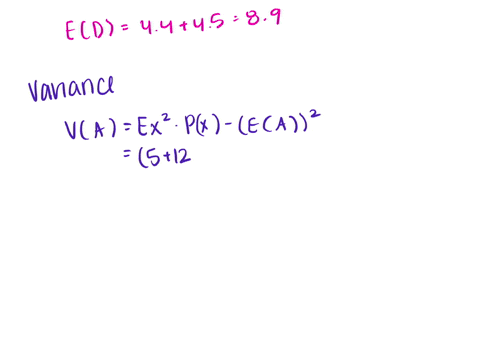 E(D) = 4.4 + 4.5 = 8.9
Variance
V(A) = Ex² · P(x) - (E(A))²
= (5+12